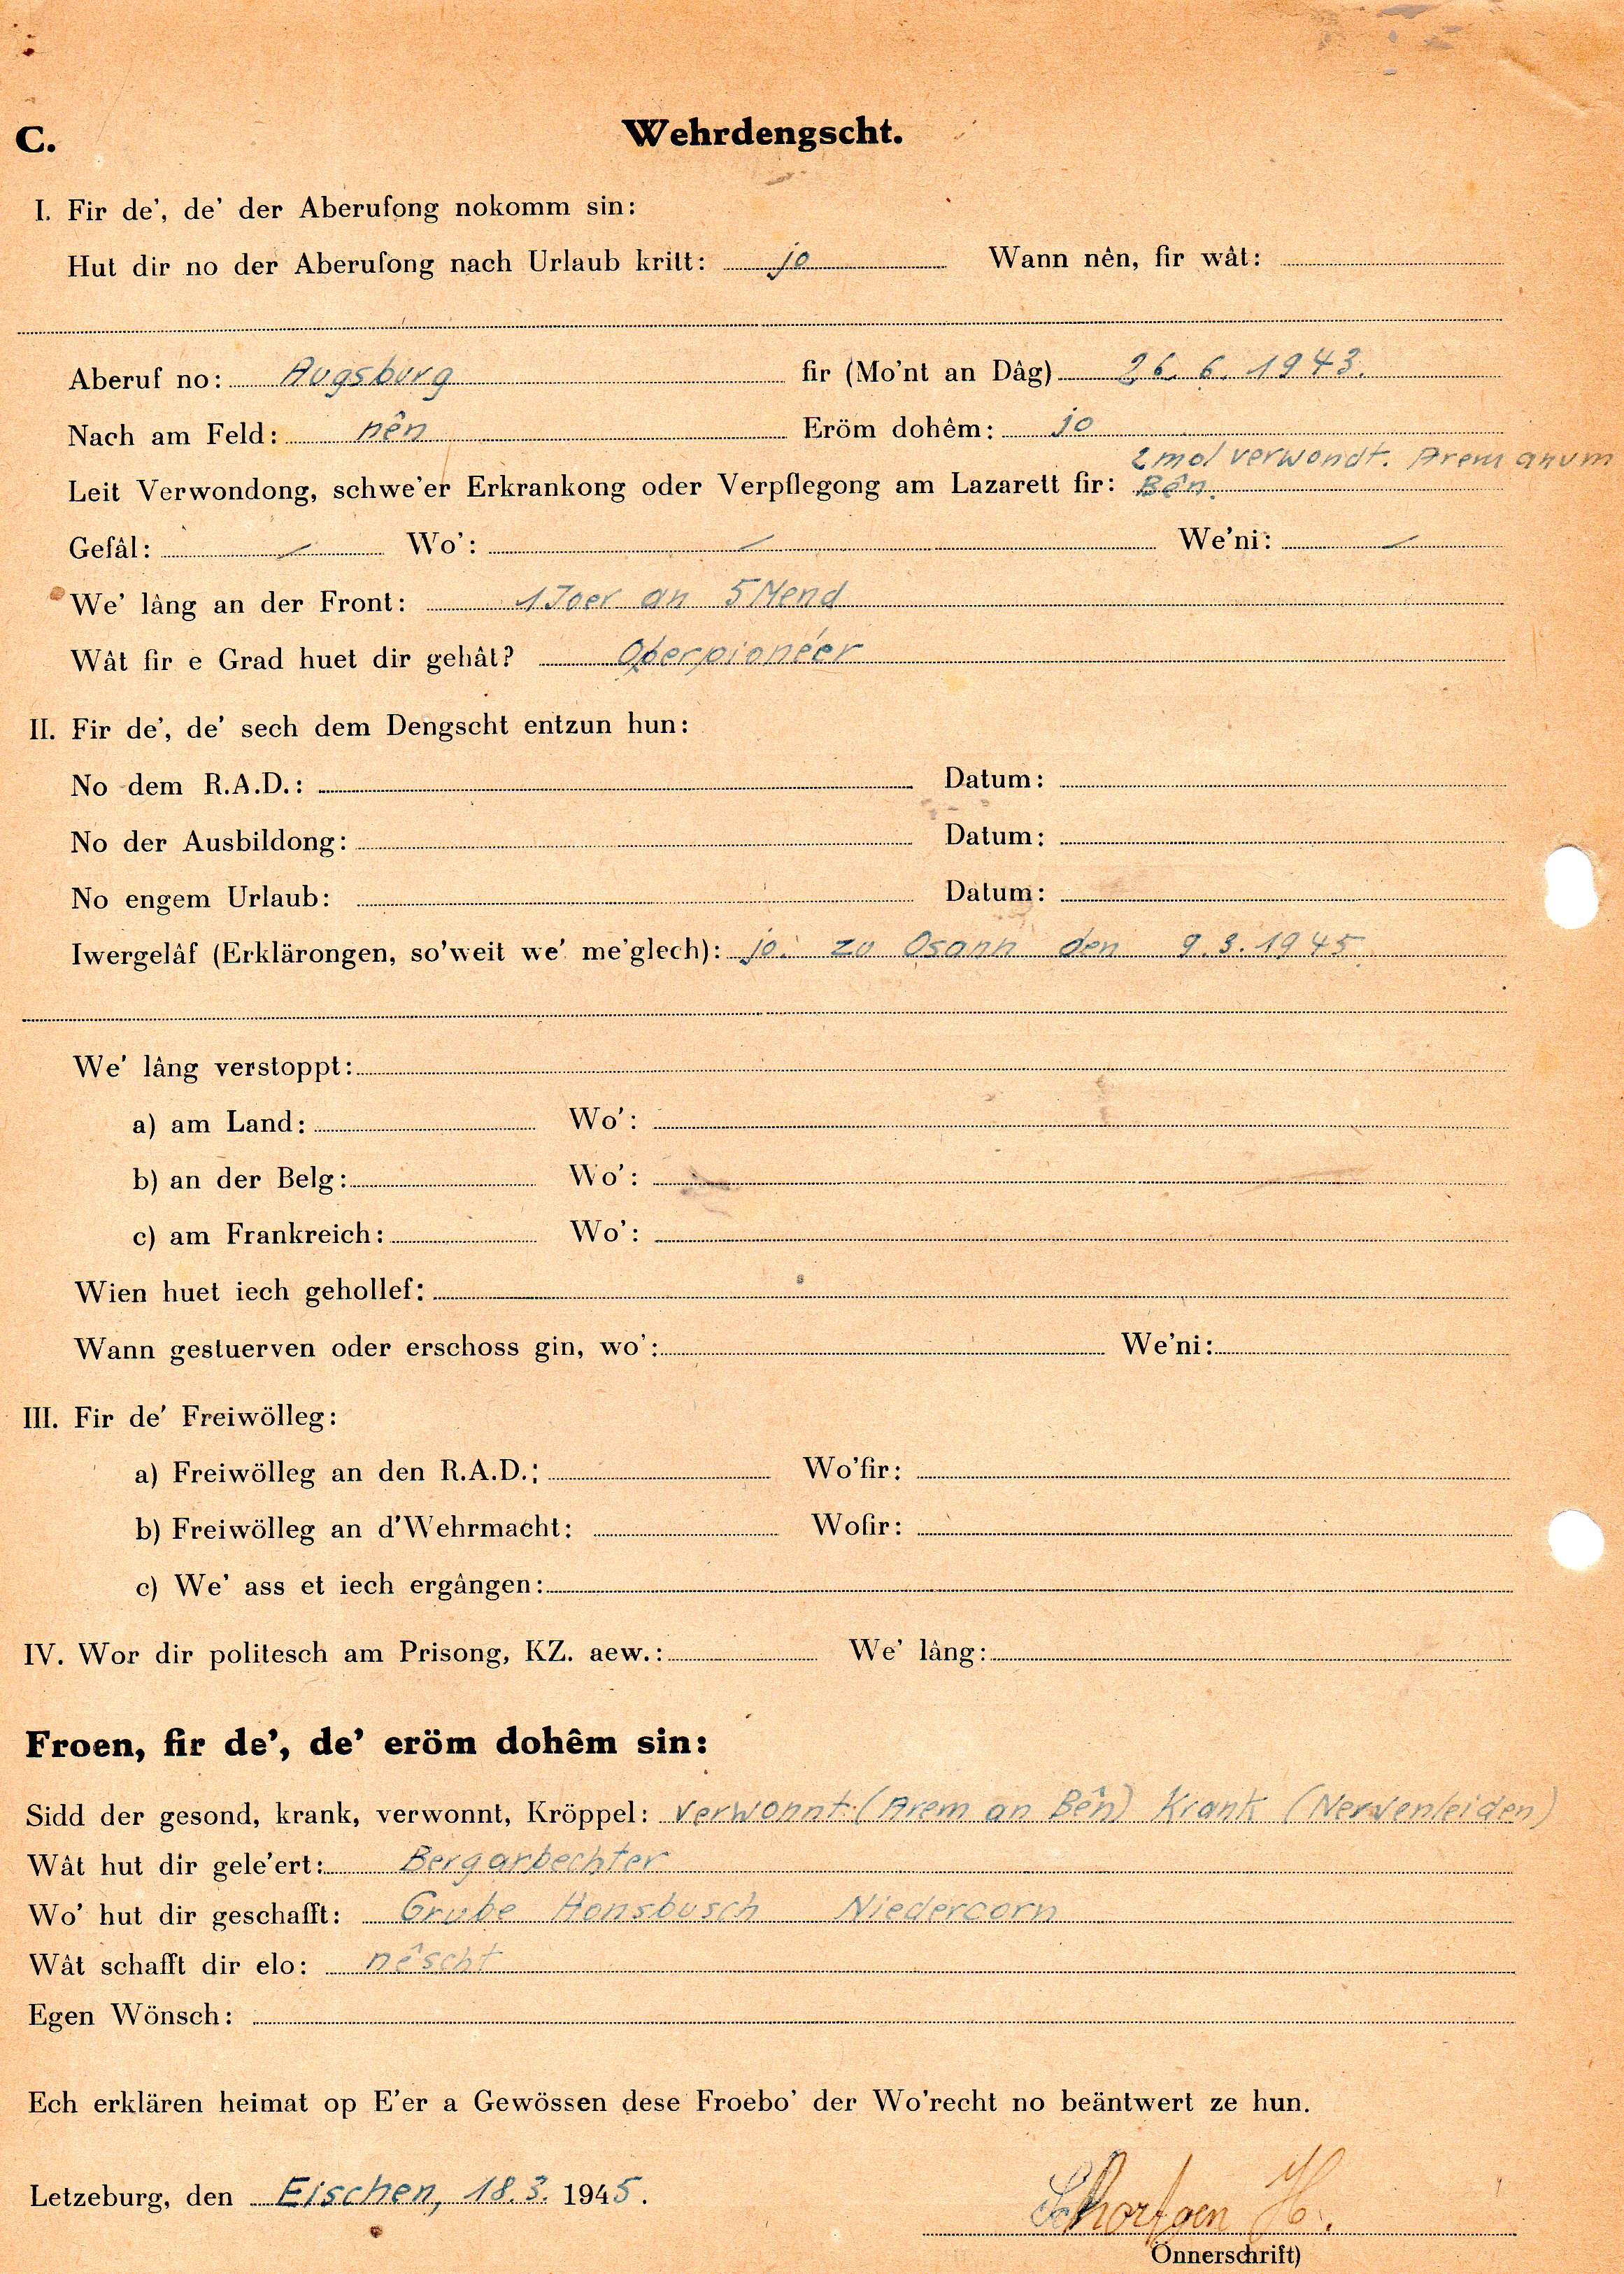 C.
Wehrdengscht.
I. Fir de', de' der Aberufong nokomm sin:
Hut dir no der Aberufong nach Urlaub kritt: jo Wann nên, fir wât:
Aberuf no: Augsburg fir (Mo'nt an Dâg) 26. 6. 1943.
Nach am Feld: nên Eröm dohêm: jo
2 mol verwondt. Arem an um
Leit Verwondong, schwe'er Erkrankong oder Verpflegong am Lazarett fir: Bên.
Gefâl: Wo': We'ni:
We' lâng an der Front: 1 Joer an 5 Mend
Wât fir e Grad huet dir gehât? Oberpionéer
II. Fir de', de' sech dem Dengscht entzun hun:
No dem R.A.D.: Datum:
No der Ausbildong: Datum:
No engem Urlaub: Datum:
Iwergelâf (Erklärongen, so'weit we' me'glech): jo. zu Osann den 9. 3. 1945
We' lâng verstoppt:
a) am Land: Wo':
b) an der Belg: Wo':
c) am Frankreich: Wo':
Wien huet iech gehollef:
Wann gestuerven oder erschoss gin, wo': We'ni:
III. Fir de' Freiwölleg:
a) Freiwölleg an den R.A.D.: Wo'fir:
b) Freiwölleg an d'Wehrmacht: Wofir:
c) We' ass et iech ergângen:
IV. Wor dir politesch am Prisong, KZ. aew.: We' lâng:
Froen, fir de', de' eröm dohêm sin:
Sidd der gesond, krank, verwonnt, Kröppel: verwonnt (Arem an Bên) Krank (Nervenleiden)
Wât hut dir gele'ert: Bergarbechter
Wo' hut dir geschafft: Grube Honsbusch Niedercorn
Wât schafft dir elo: nêscht
Egen Wönsch:
Ech erklären heimat op E'er a Gewössen dese Froebo' der Wo'recht no beäntwert ze hun.
Letzeburg, den Eischen, 18. 3. 1945.
H.
Onnerschrift)